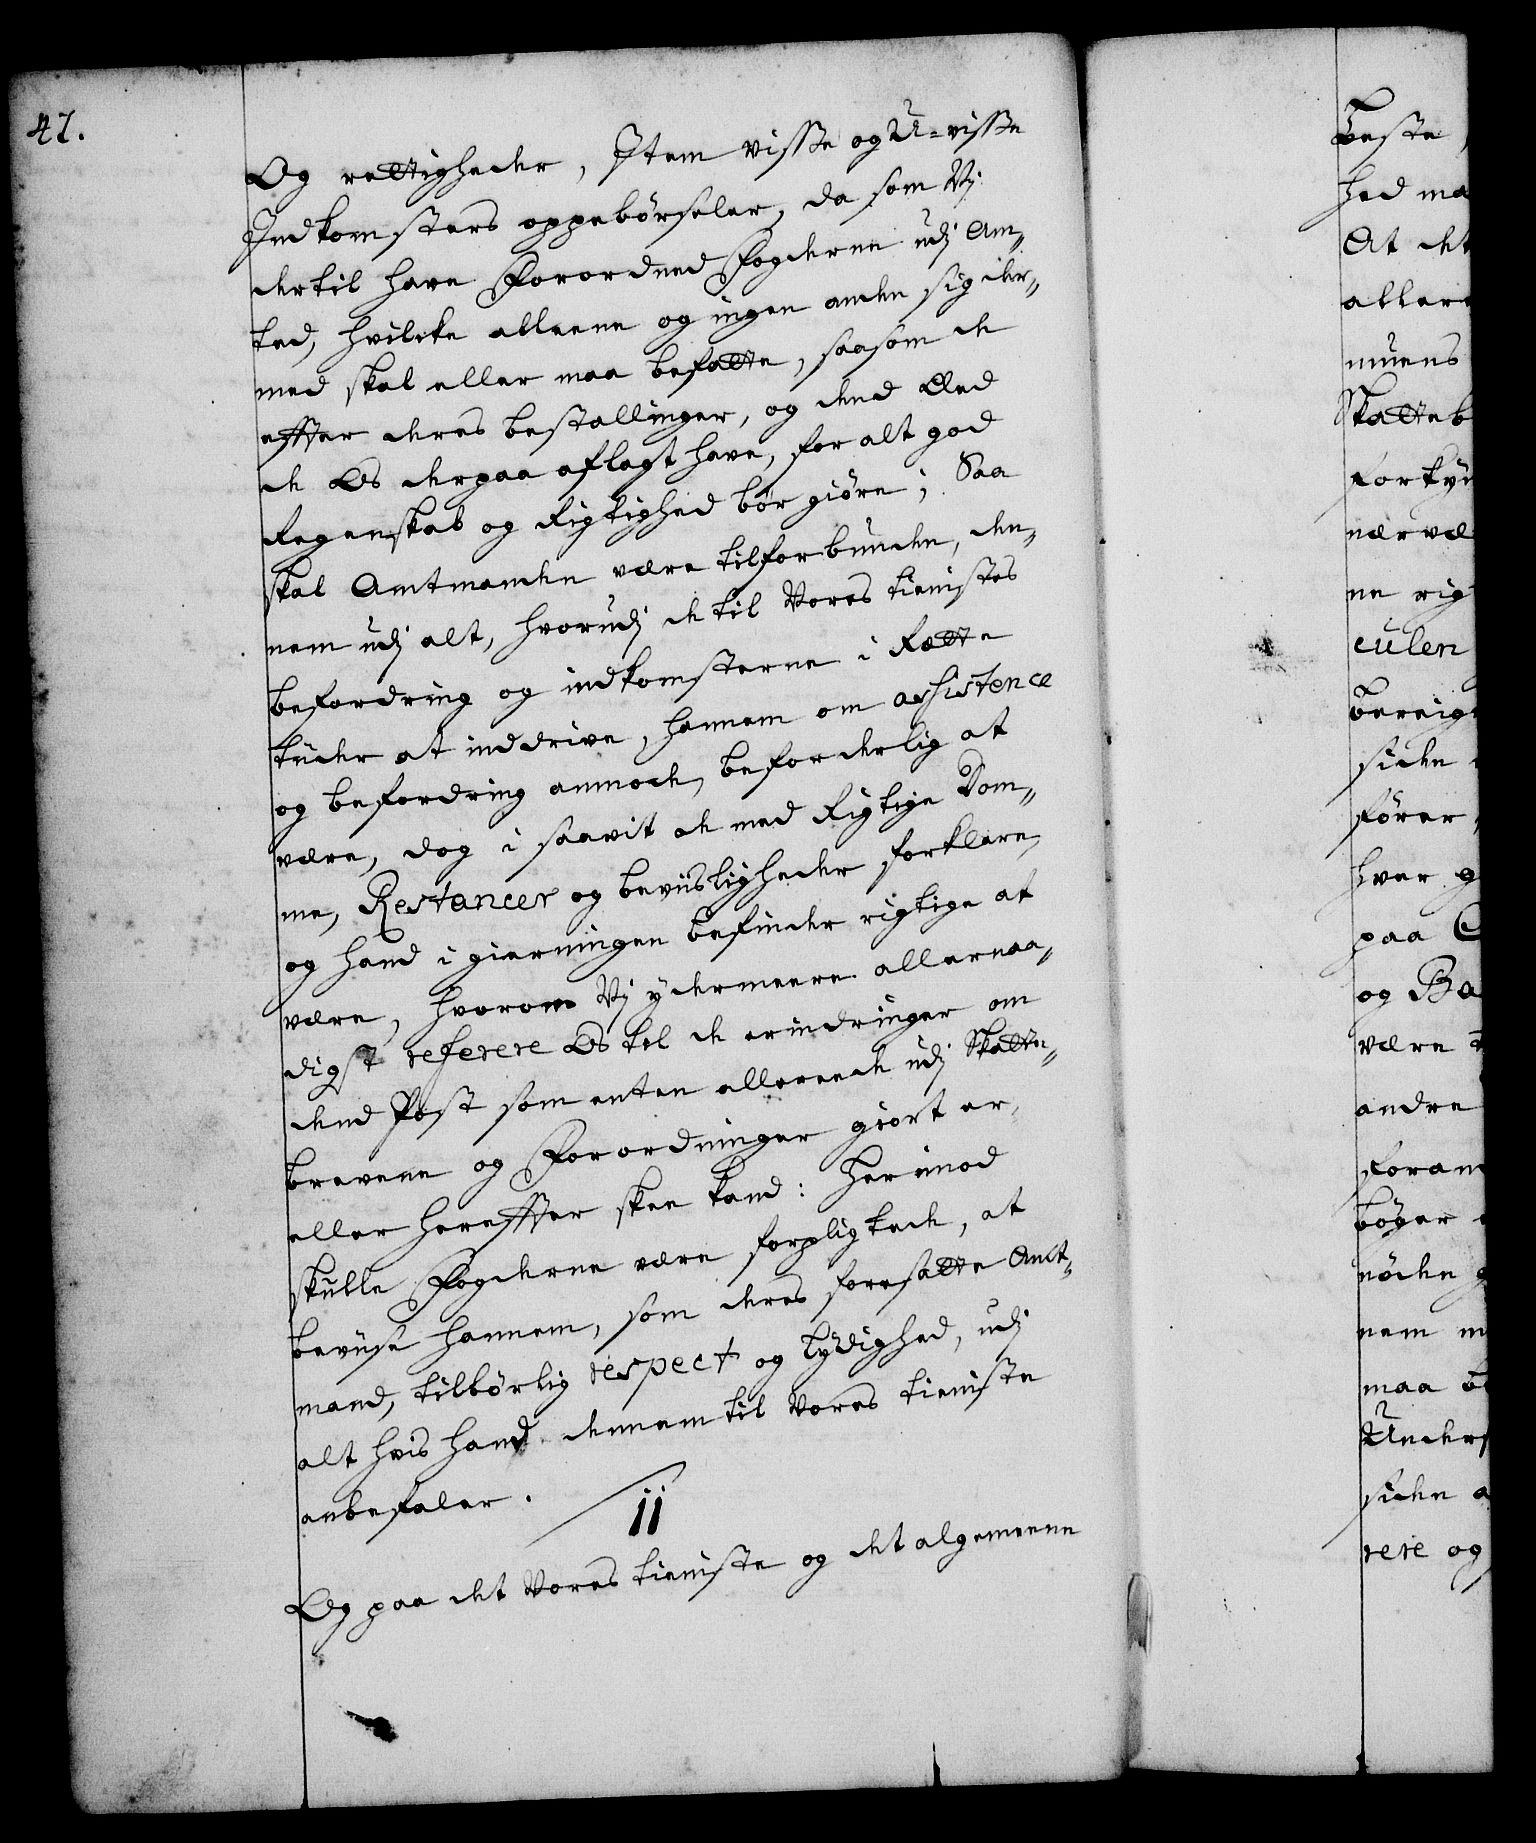 47.
Og rettigheder, Item visse og U-visse
Indkomsters oppebörseler, da som Vj
dertil have Forordned Fogderne udj Am„
ted, hvilcke alleene og ingen anden sig der„
med skal eller maa befatte, saasom de
effter deres bestallinger, og dend Eed
de Os derpaa aflagt have, for alt god
Regenskab og Rigtighed bör giöre; Saa
skal Amtmanden være tilforbunden, den„
nem udj alt, hvorudj de til Vores tienistes
befordring og indkomsterne i Rætte
tiider at inddrive, hannem om assistence
og befordring anmode, beforderlig at
være, dog i saavit de med Rigtige Dom„
me, Restancer og beviisligheder forklare,
og hand i gierningen befinder rigtige at
være, hvorom Vj ydermeere allernaa„
digst referere Os til de erindringer om
dend Post som enten allereede udj Skatte„
brevene og Forordninger giort er,
eller hereffter skee kand: Herimod
skulle Fogderne være forpligtede, at
beviise hannem, som deres foresatte Ambt„
mand, tilbörlig respect og lydighed, udj
alt hvis hand dennem til Vores tieniste
anbefaler.
11
Og paa det Vores tieniste og det algemeene
beste
hed ma
At det
allere
muens
Skatteb
forkyn
nærvæ
ne rig
culen
bereig
siden
förer
hver g
paa C
og Ba
være
andre
foran
böger
nöden g
nem m
maa b
Unders
siden a
rere og